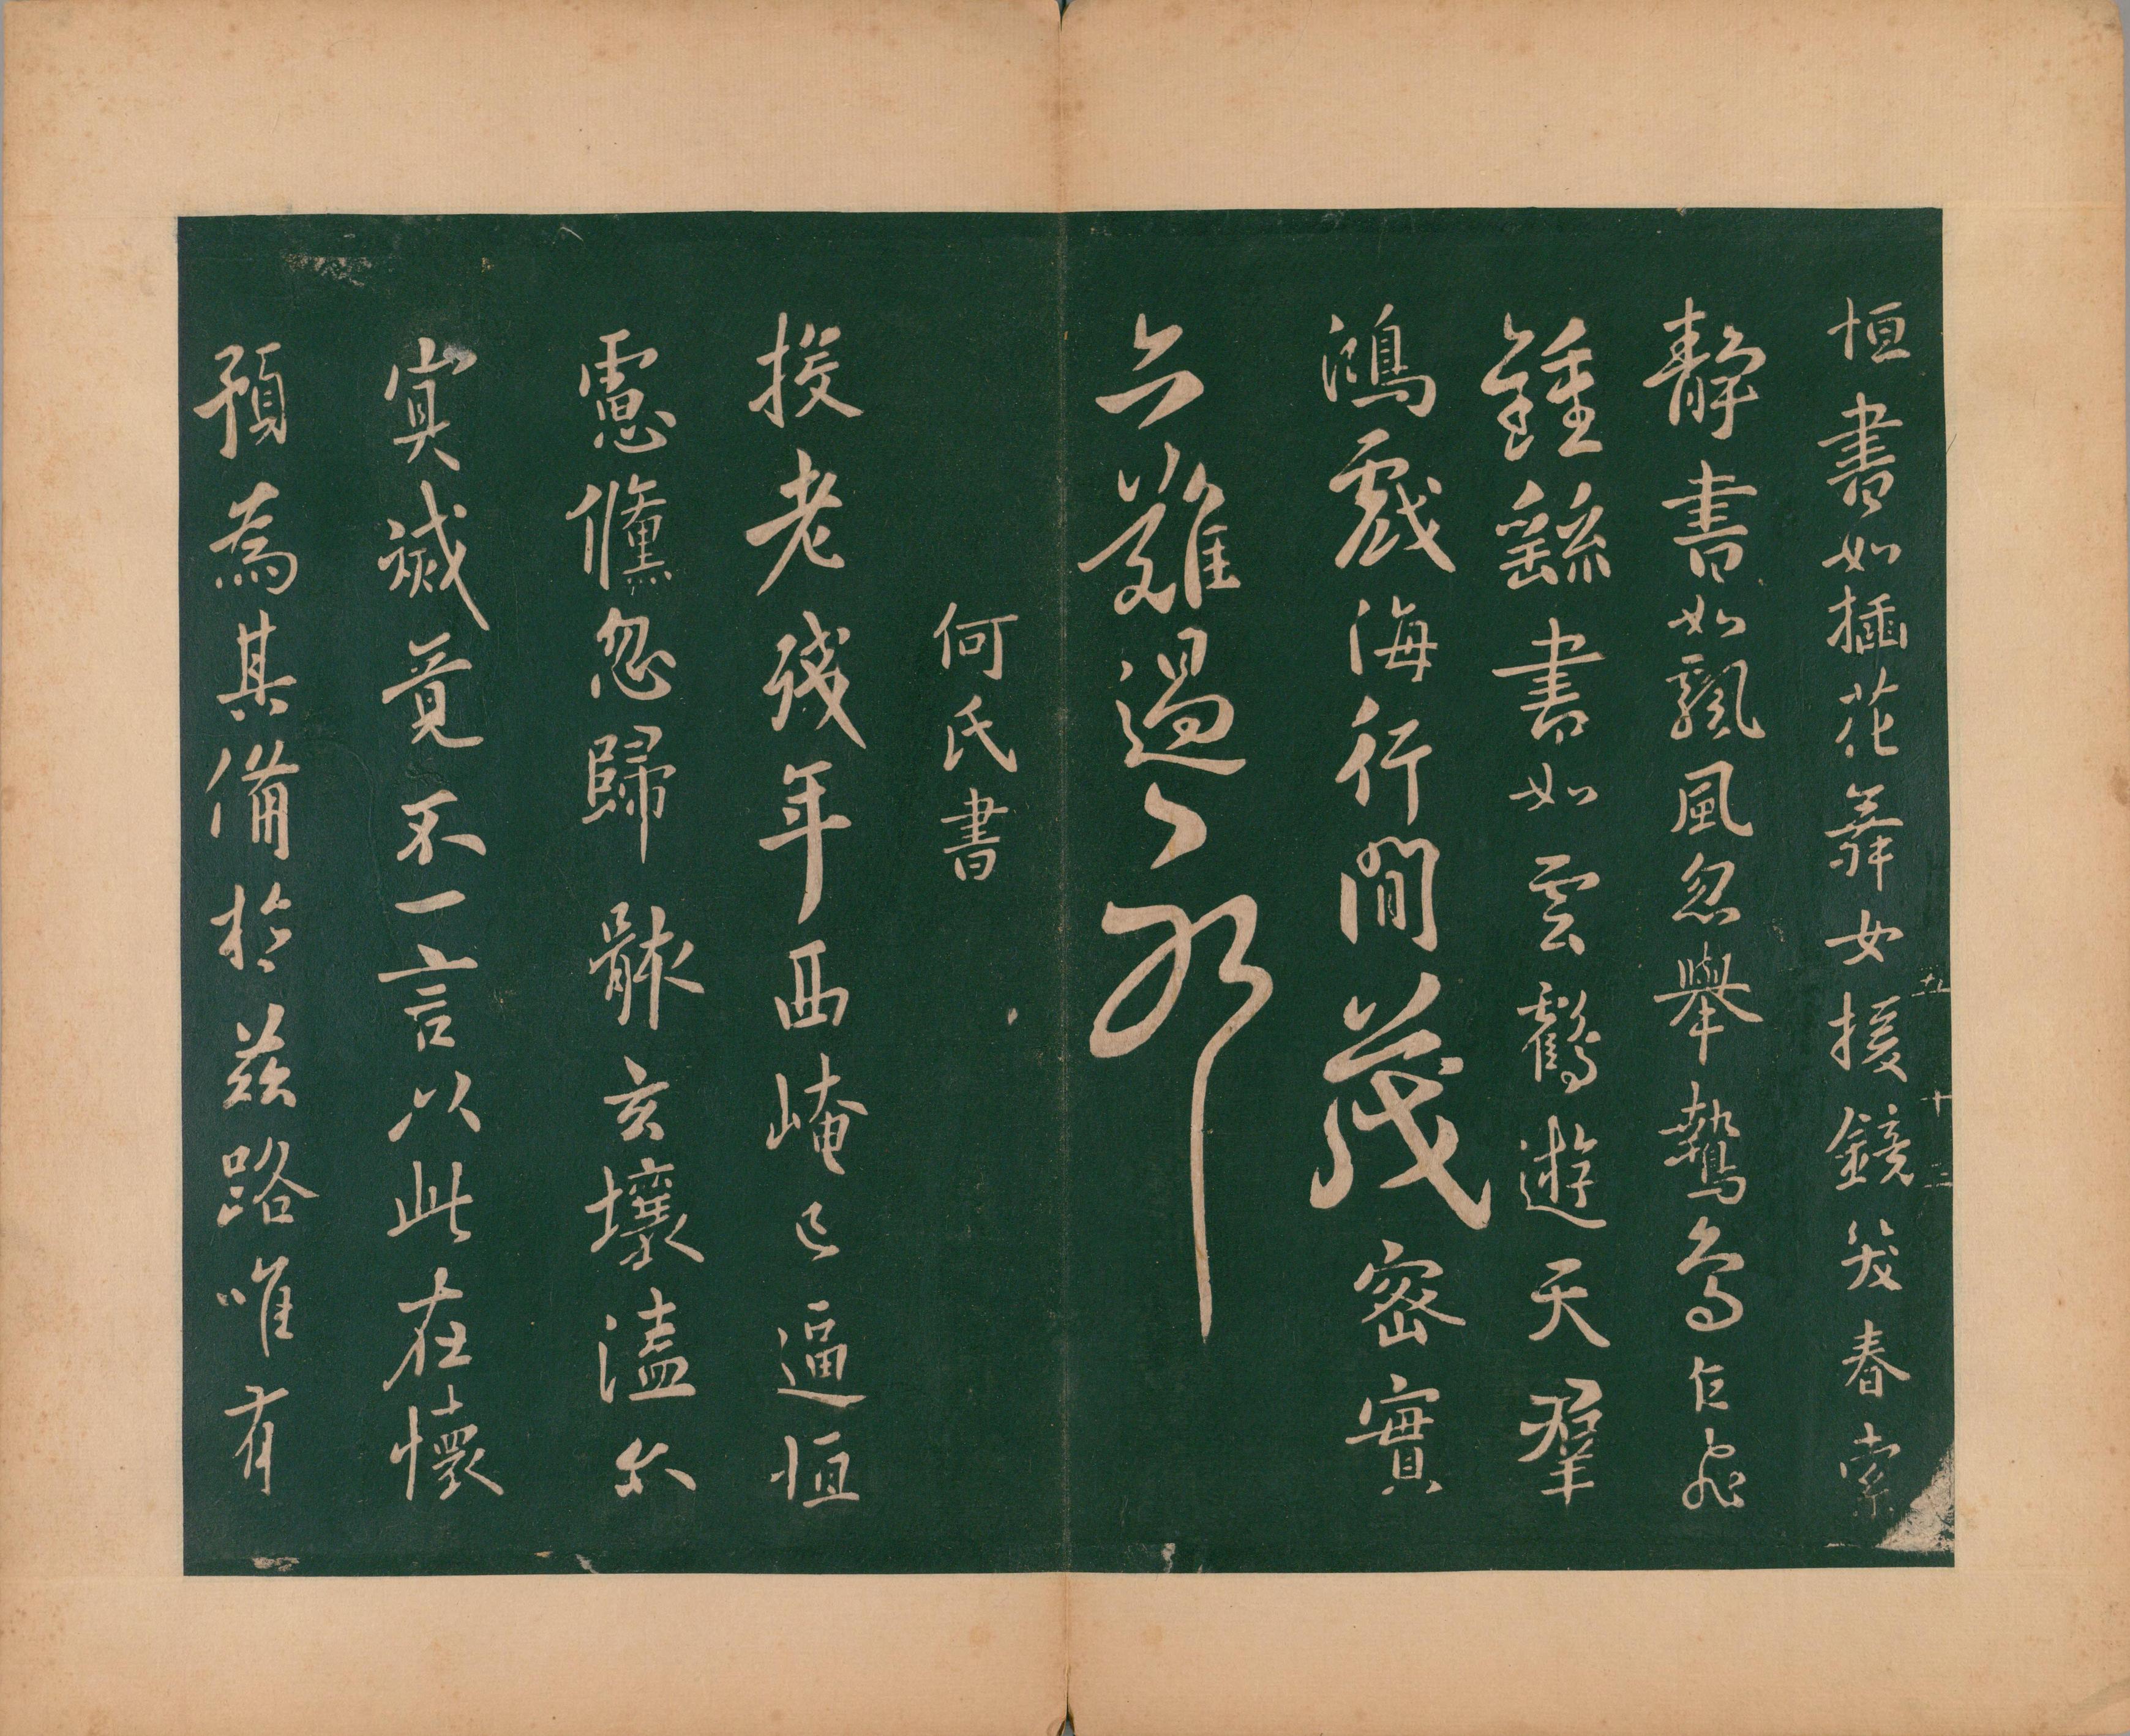 恒書如插花舞女援鏡笑春索
靜書如飄風忽舉鷙鳥乍飛
鍾繇書如雲鶴遊天群
鴻戲海行間茂密實
亦難過之耶
何氏書
投老殘年西崦已逼恒
慮儵忽歸骸玄壤溘尒
冥滅竟不一言以此在懷
預為其備於茲路唯有
五 十二